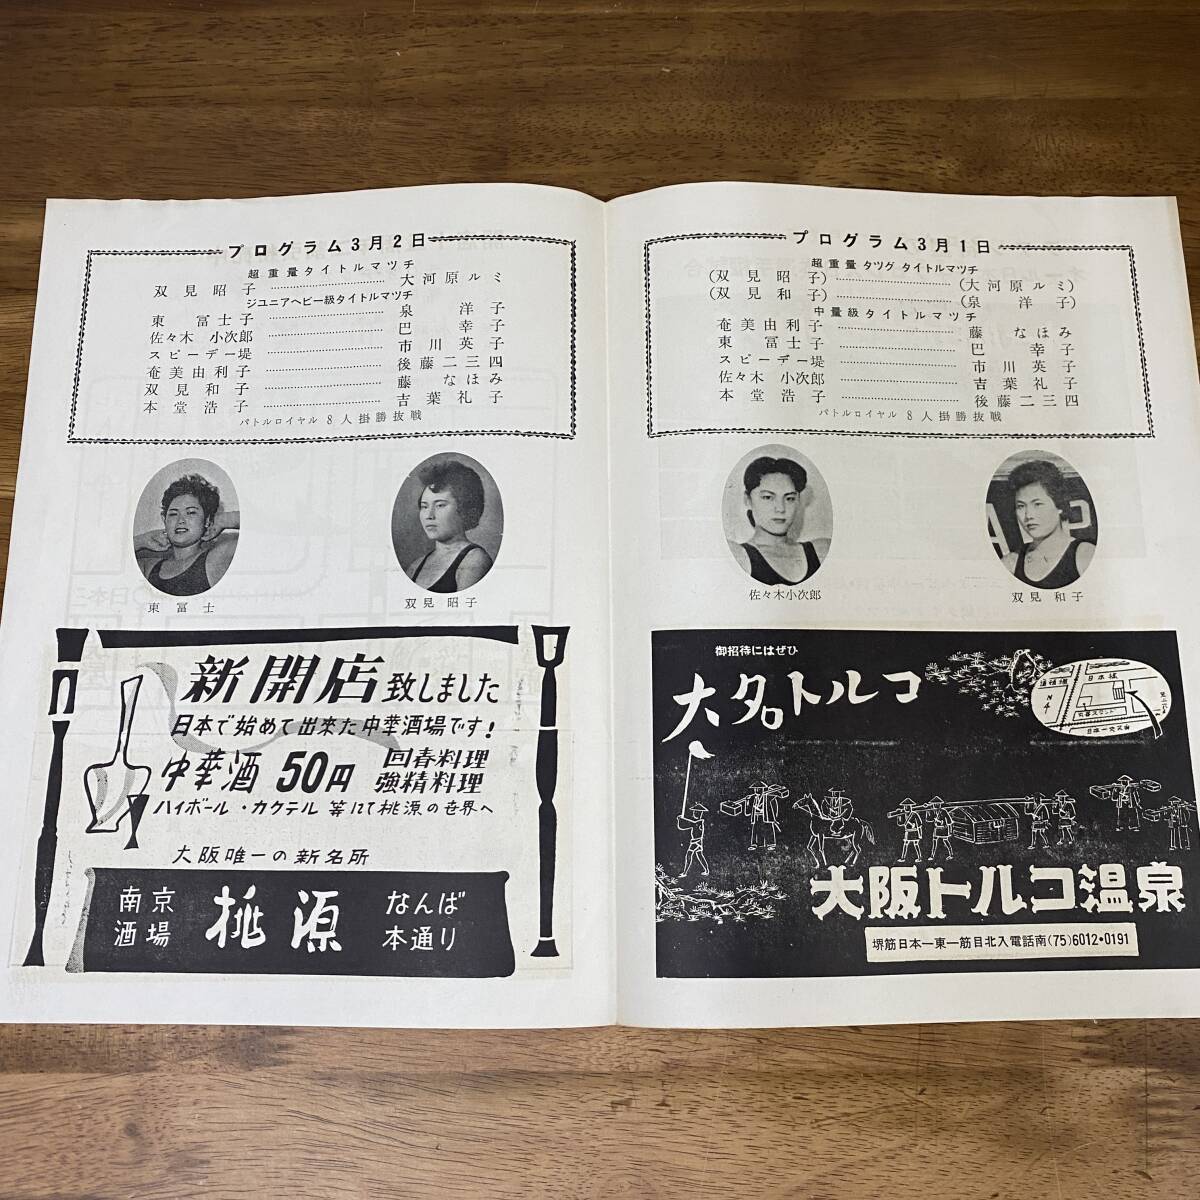 プログラム3月2日
超重量タイトルマツチ
双見昭子 大河原ルミ
ジユニアヘビー級タイトルマツチ
東冨士子 泉洋子
佐々木小次郎 巴幸子
スピーデー堤 市川英子
奄美由利子 後藤二三四
双見和子 藤なほみ
本堂浩子 吉葉礼子
バトルロイヤル8人掛勝抜戦
東冨士
双見昭子
新開店致しました
日本で始めて出来た中華酒場です!
中華酒50円 回春料理
強精料理
ハイボール・カクテル等にて桃源の世界へ
大阪唯一の新名所
南京酒場 桃源 なんば本通り
プログラム3月1日
超重量タツグタイトルマツチ
(双見昭子) (大河原ルミ)
(双見和子) (泉洋子)
中量級タイトルマツチ
奄美由利子 藤なほみ
東冨士子 巴幸子
スピーデー堤 市川英子
佐々木小次郎 吉葉礼子
本堂浩子 後藤二三四
バトルロイヤル8人掛勝抜戦
佐々木小次郎
双見和子
御招待にはぜひ
大名トルコ
N
日本橋
大阪トルコ温泉
堺筋日本一東一筋目北入電話南(75)6012・0191